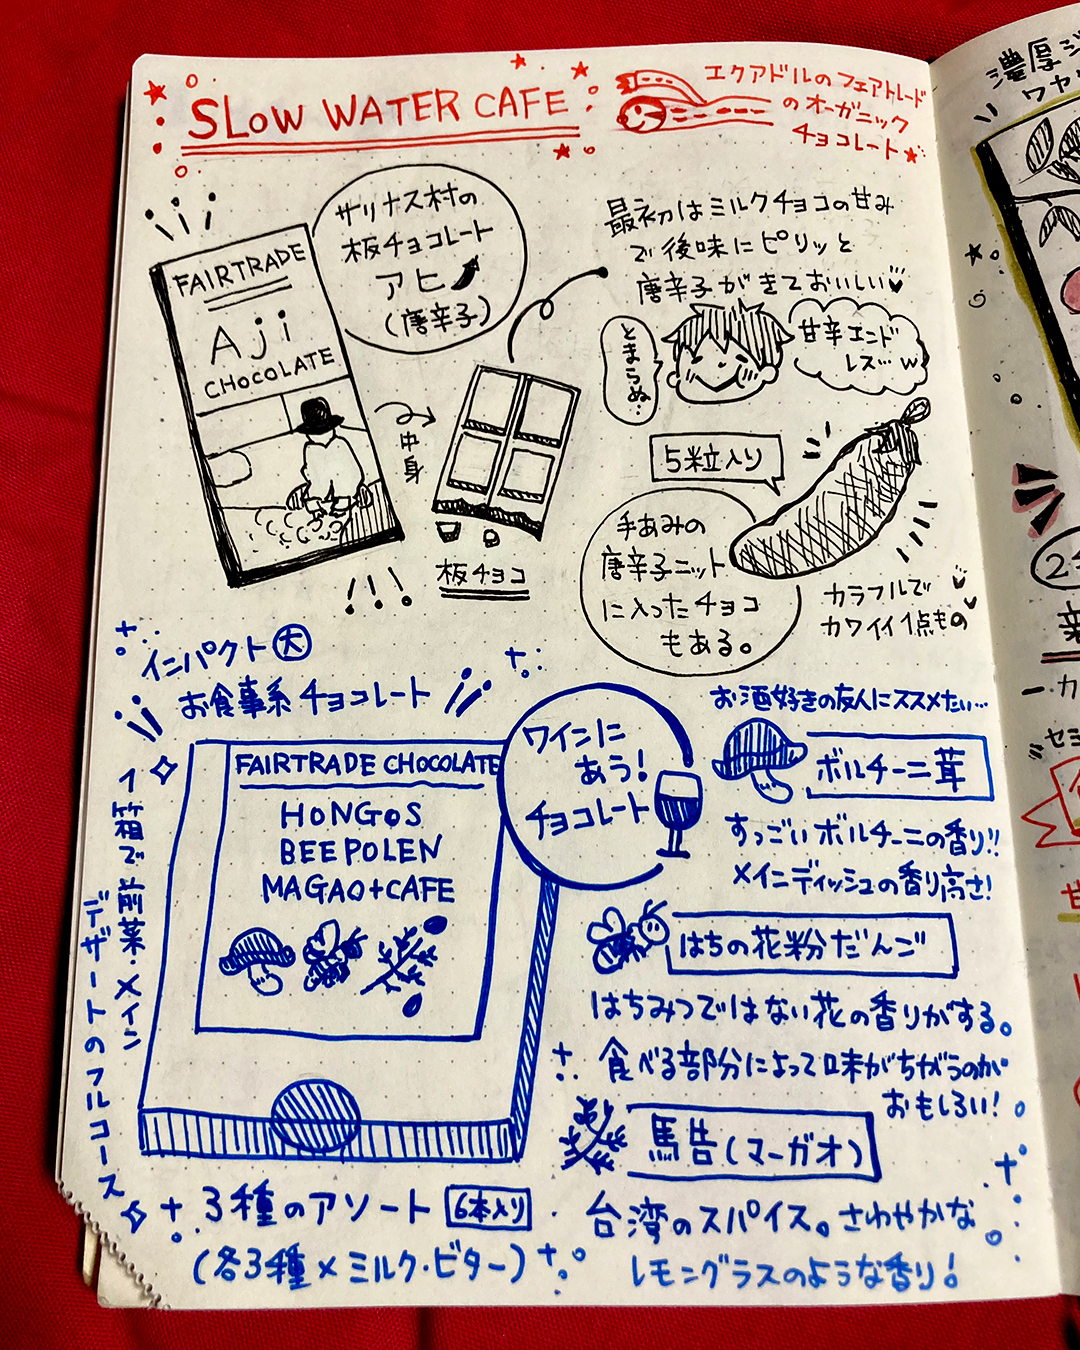 SLOW WATER CAFE
エクアドルのフェアトレード
のオーガニック
チョコレート
サリナス村の
板チョコレート
アヒ
(唐辛子)
FAIRTRADE
Aji
CHOCOLATE
中身
板チョコ
最初はミルクチョコの甘み
で後味にピリッと
唐辛子がきておいしい
とまらぬ…
甘辛エンド
レス…w
5粒入り
手あみの
唐辛子ニット
に入ったチョコ
もある。
カラフルで
カワイイ1点もの
インパクト大
お食事系チョコレート
1箱で前菜・メイン
デザートのフルコース
FAIRTRADE CHOCOLATE
HONGOS
BEE POLEN
MAGAO+CAFE
ワインに
あう!
チョコレート
3種のアソート 6本入り
(各3種×ミルク・ビター)
お酒好きの友人にススメたい…
ポルチーニ茸
すっごいポルチーニの香り!!
メインディッシュの香り高さ!
はちの花粉だんご
はちみつではない花の香りがする。
食べる部分によって味がちがうのが
おもしろい!
馬告(マーガオ)
台湾のスパイス。さわやかな
レモングラスのような香り!
濃厚